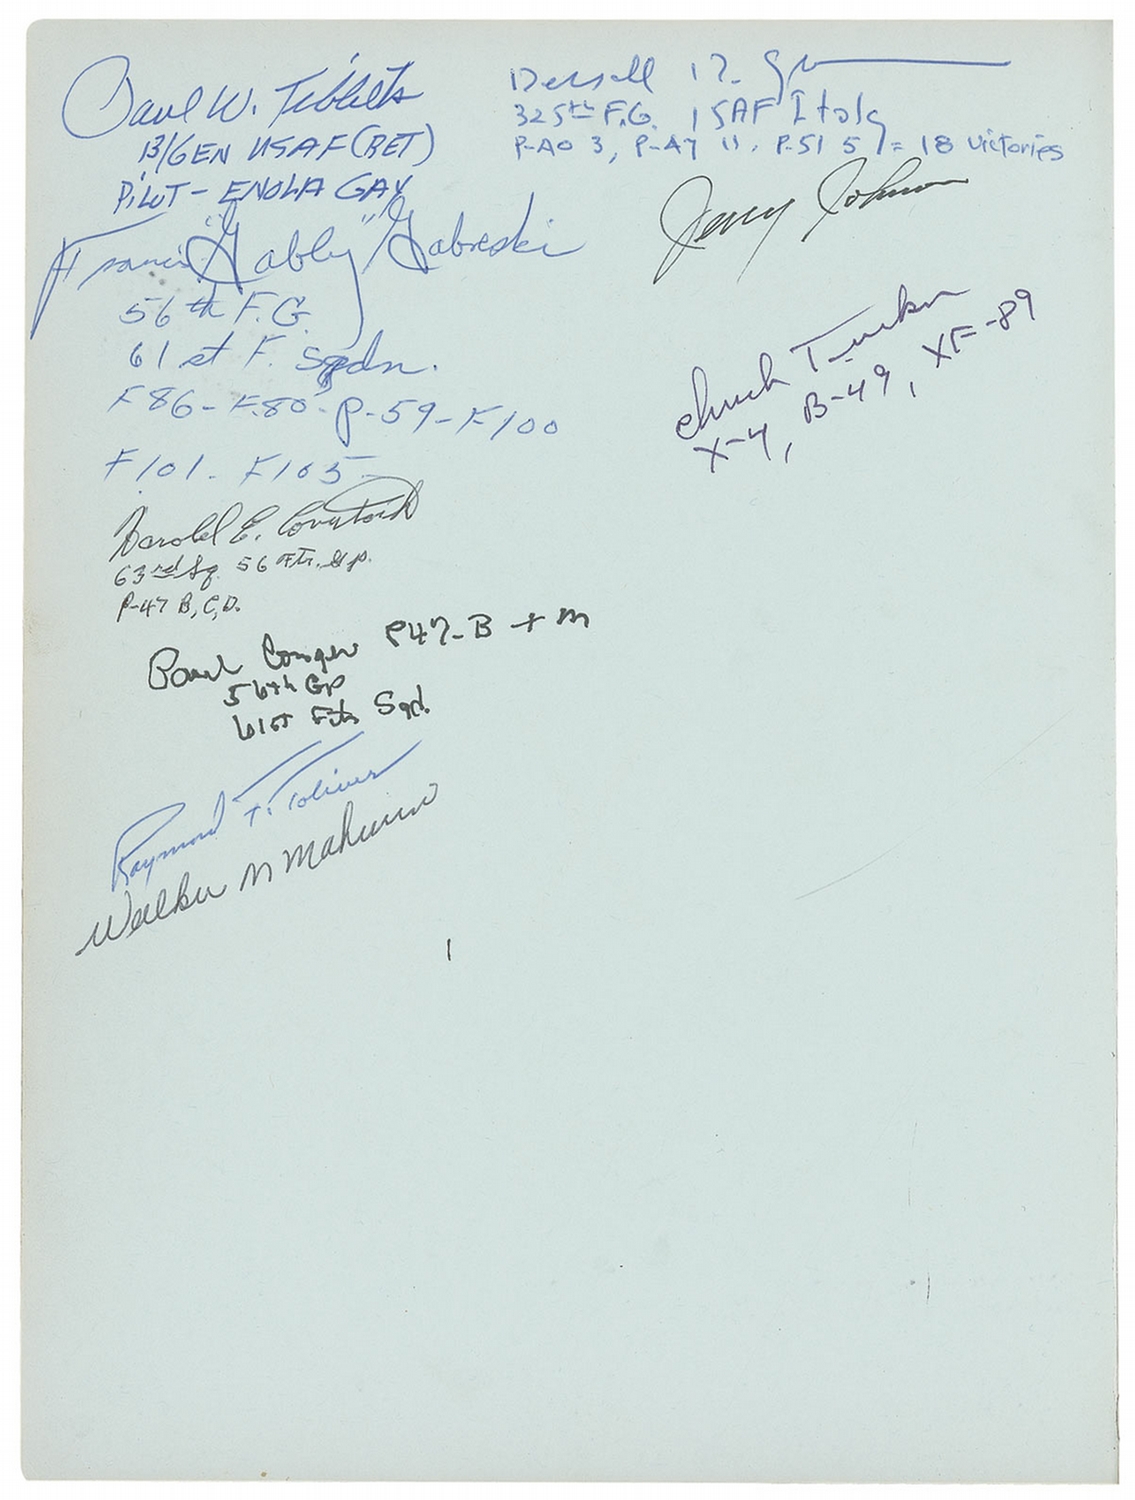 Paul W. Tibbets
B/GEN USAF (RET)
PILOT - ENOLA GAY
Francis "Gabby" Gabreski
56th F.G.
61st F. Sqdn.
F86 - F.80 - P-59 - F100
F101 - F105 -
Harold E. Comstock
63rd Sq. 56 Ftr. Gp.
P-47 B, C, D.
Paul Conger P47-B + M
56th GP
61st Ftr Sqd.
Raymond F. Toliver
Walker M Mahurin
Herschel H. Green
325th F.G. 15AF Italy
P-40 3, P-47 11, P-51 5 = 18 victories
Jerry Johnson
Chuck Tucker
X-4, B-49, XF-89